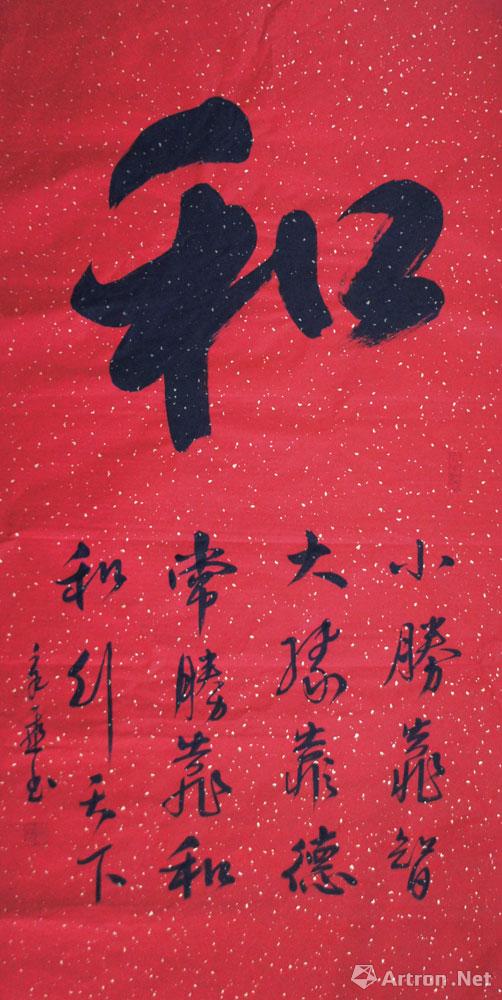 和
小勝靠智
大勝靠德
常勝靠和
和行天下
Artron.Net